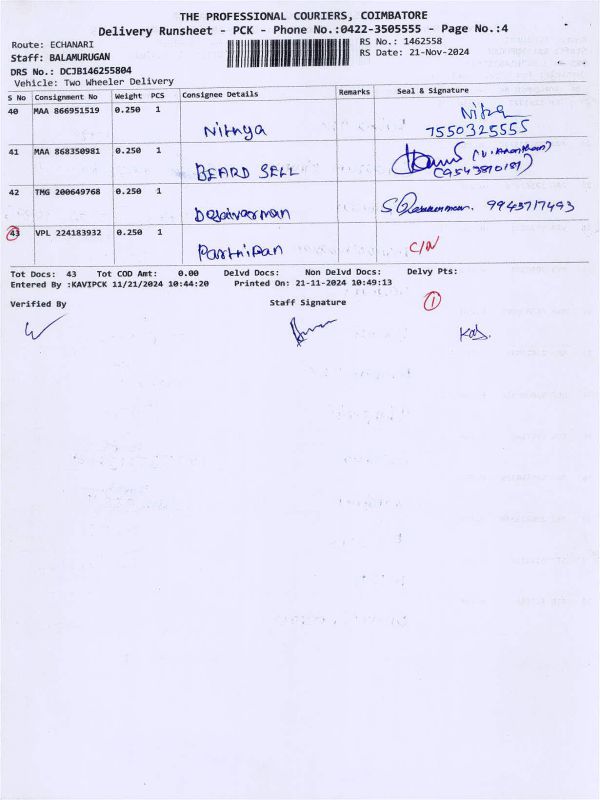 THE PROFESSIONAL COURIERS, COIMBATORE
Delivery Runsheet - PCK - Phone No.:0422-3505555 - Page No.:4
Route: ECHANARI RS No.: 1462558
Staff: BALAMURUGAN RS Date: 21-Nov-2024
DRS No.: DCJB146255804
Vehicle: Two Wheeler Delivery
S No Consignment No Weight PCS Consignee Details Remarks Seal & Signature
40 MAA 866951519 0.250 1
Nithya 7550325555
41 MAA 868350981 0.250 1
BEARD SELL
42 TMG 200649768 0.250 1
9943717493
43 VPL 224183932 0.250 1
Parthipan C/N
Tot Docs: 43 Tot COD Amt: 0.00 Delvd Docs: Non Delvd Docs: Delvy Pts:
Entered By :KAVIPCK 11/21/2024 10:44:20 Printed On: 21-11-2024 10:49:13
1
Verified By Staff Signature